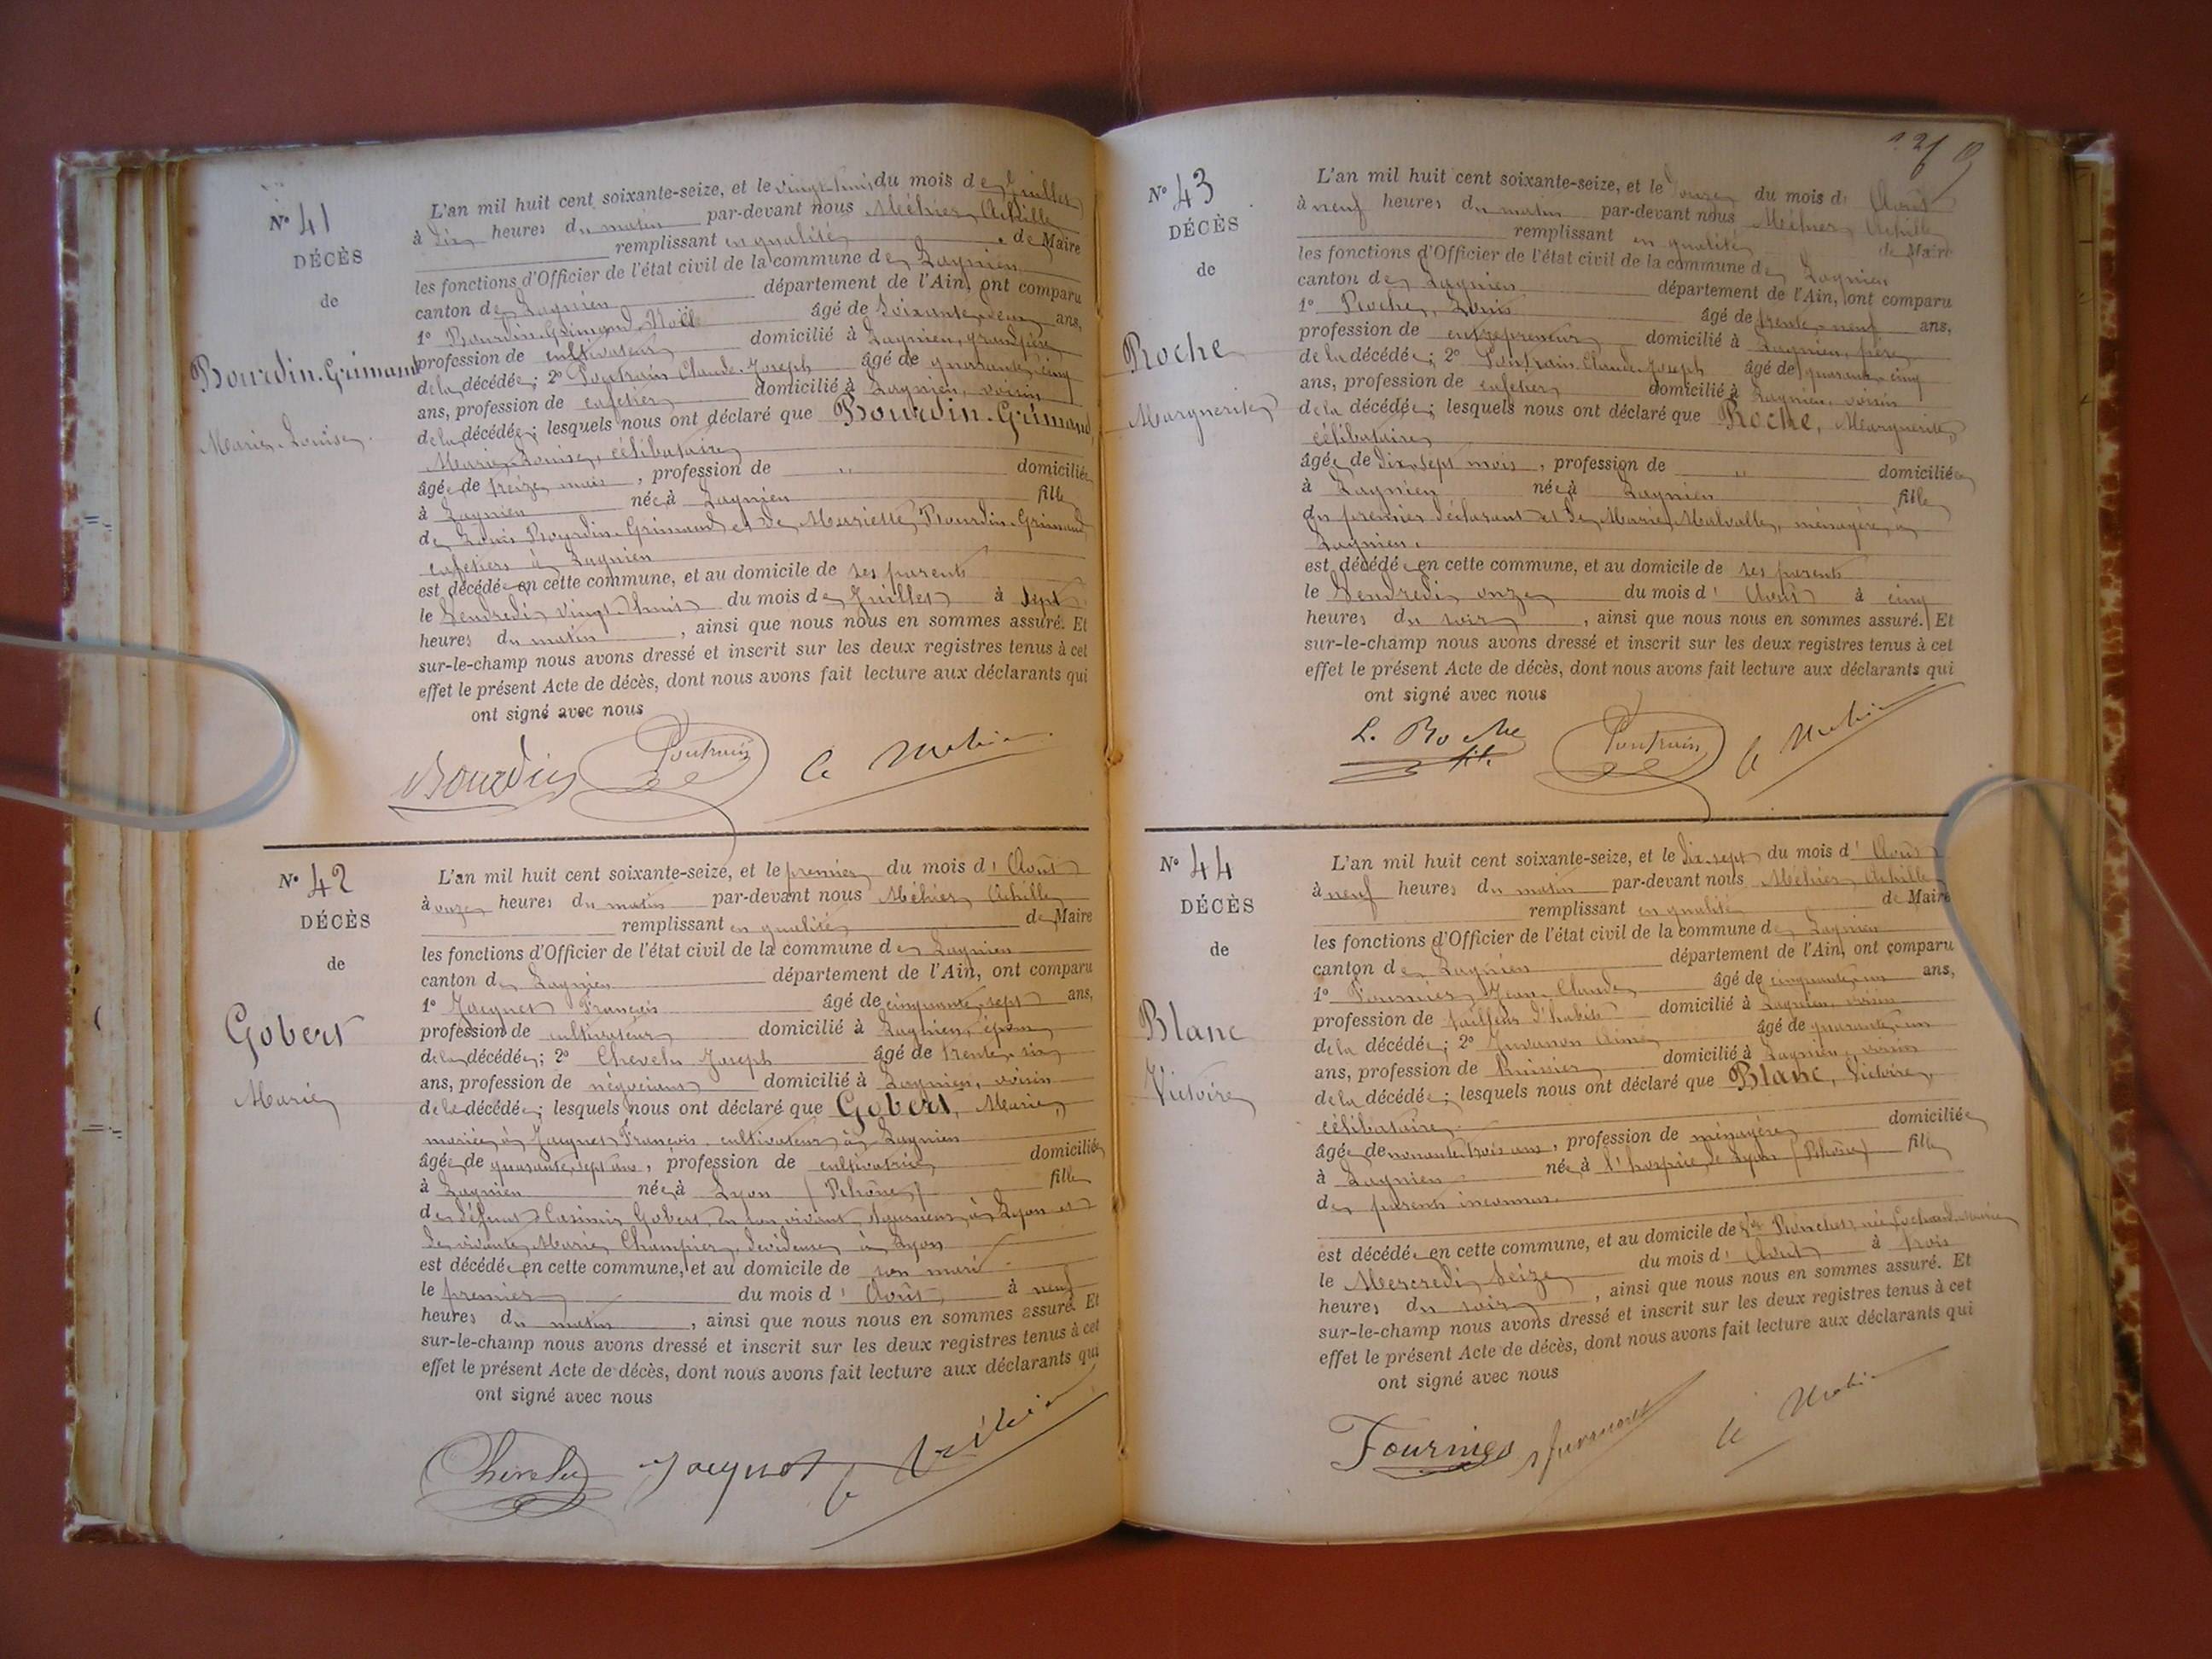 N° 41
DÉCÈS
de
Bourdin-Grimaud
Marie-Louise
L'an mil huit cent soixante-seize, et le vingt-huit du mois de Juillet
à dix heures du matin par-devant nous Méhier Achille
remplissant en qualité de Maire
les fonctions d'Officier de l'état civil de la commune de Lagnieu
canton de Lagnieu département de l'Ain, ont comparu
1° Bourdin-Grimaud Noël âgé de soixante-deux ans,
profession de cultivateur domicilié à Lagnieu, grand père
de la décédée; 2° Poutrain Claude-Joseph âgé de quarante-cinq
ans, profession de cafetier domicilié à Lagnieu, voisin
de la décédée; lesquels nous ont déclaré que Bourdin-Grimaud,
Marie-Louise, célibataire
âgée de treize mois, profession de " domiciliée
à Lagnieu née à Lagnieu fille
de Louis Bourdin-Grimaud et de Mariette Bourdin-Grimaud
cafetiers à Lagnieu
est décédée en cette commune, et au domicile de ses parents
le Vendredi vingt-huit du mois de Juillet à sept
heures du matin, ainsi que nous nous en sommes assuré. Et
sur-le-champ nous avons dressé et inscrit sur les deux registres tenus à cet
effet le présent Acte de décès, dont nous avons fait lecture aux déclarants qui
ont signé avec nous
Bourdin Poutrain Méhier
N° 42
DÉCÈS
de
Gobert
Marie
L'an mil huit cent soixante-seize, et le premier du mois d'Août
à onze heures du matin par-devant nous Méhier Achille
remplissant en qualité de Maire
les fonctions d'Officier de l'état civil de la commune de Lagnieu
canton de Lagnieu département de l'Ain, ont comparu
1° Jacquet François âgé de cinquante-sept ans,
profession de cultivateur domicilié à Lagnieu, époux
de la décédée; 2° Chevelu Joseph âgé de trente-six
ans, profession de négociant domicilié à Lagnieu, voisin
de la décédée; lesquels nous ont déclaré que Gobert, Marie,
mariée à Jacquet François cultivateur à Lagnieu
âgée de quarante-sept ans, profession de cultivatrice domiciliée
à Lagnieu née à Lyon (Rhône) fille
de défunt Casimir Gobert, en son vivant, à Lyon et
de vivante Marie Champier, dévideuse à Lyon
est décédée en cette commune, et au domicile de son mari
le premier du mois d'Août à neuf
heures du matin, ainsi que nous nous en sommes assuré. Et
sur-le-champ nous avons dressé et inscrit sur les deux registres tenus à cet
effet le présent Acte de décès, dont nous avons fait lecture aux déclarants qui
ont signé avec nous
Chevelu Jacquet Méhier
N° 43
DÉCÈS
de
Roche
Marguerite
L'an mil huit cent soixante-seize, et le douze du mois d'Août
à neuf heures du matin par-devant nous Méhier Achille
remplissant en qualité de Maire
les fonctions d'Officier de l'état civil de la commune de Lagnieu
canton de Lagnieu département de l'Ain, ont comparu
1° Roche, Louis âgé de trente-neuf ans,
profession de entrepreneur domicilié à Lagnieu, père
de la décédée; 2° Poutrain Claude-Joseph âgé de quarante-cinq
ans, profession de cafetier domicilié à Lagnieu, voisin
de la décédée; lesquels nous ont déclaré que Roche, Marguerite,
célibataire
âgée de dix-sept mois, profession de " domiciliée
à Lagnieu née à Lagnieu fille
du premier déclarant et de Marie Malvalle, ménagère, à
Lagnieu.
est décédée en cette commune, et au domicile de ses parents
le Vendredi onze du mois d'Août à cinq
heures du soir, ainsi que nous nous en sommes assuré. Et
sur-le-champ nous avons dressé et inscrit sur les deux registres tenus à cet
effet le présent Acte de décès, dont nous avons fait lecture aux déclarants qui
ont signé avec nous
L. Roche Poutrain Méhier
N° 44
DÉCÈS
de
Blanc
Victoire
L'an mil huit cent soixante-seize, et le dix-sept du mois d'Août
à neuf heures du matin par-devant nous Méhier Achille
remplissant en qualité de Maire
les fonctions d'Officier de l'état civil de la commune de Lagnieu
canton de Lagnieu département de l'Ain, ont comparu
1° Fournier, Jean-Claude âgé de cinquante-un ans,
profession de tailleur d'habits domicilié à Lagnieu, voisin
de la décédée; 2° Juvanon Aimé âgé de quarante-un
ans, profession de huissier domicilié à Lagnieu, voisin
de la décédée; lesquels nous ont déclaré que Blanc, Victoire,
célibataire
âgée de nonante-trois ans, profession de ménagère domiciliée
à Lagnieu née à l'hospice de Lyon (Rhône) fille
de parents inconnus.
est décédée en cette commune, et au domicile de née
le Mercredi seize du mois d'Août à trois
heures du soir, ainsi que nous nous en sommes assuré. Et
sur-le-champ nous avons dressé et inscrit sur les deux registres tenus à cet
effet le présent Acte de décès, dont nous avons fait lecture aux déclarants qui
ont signé avec nous
Fournier Juvanon Méhier